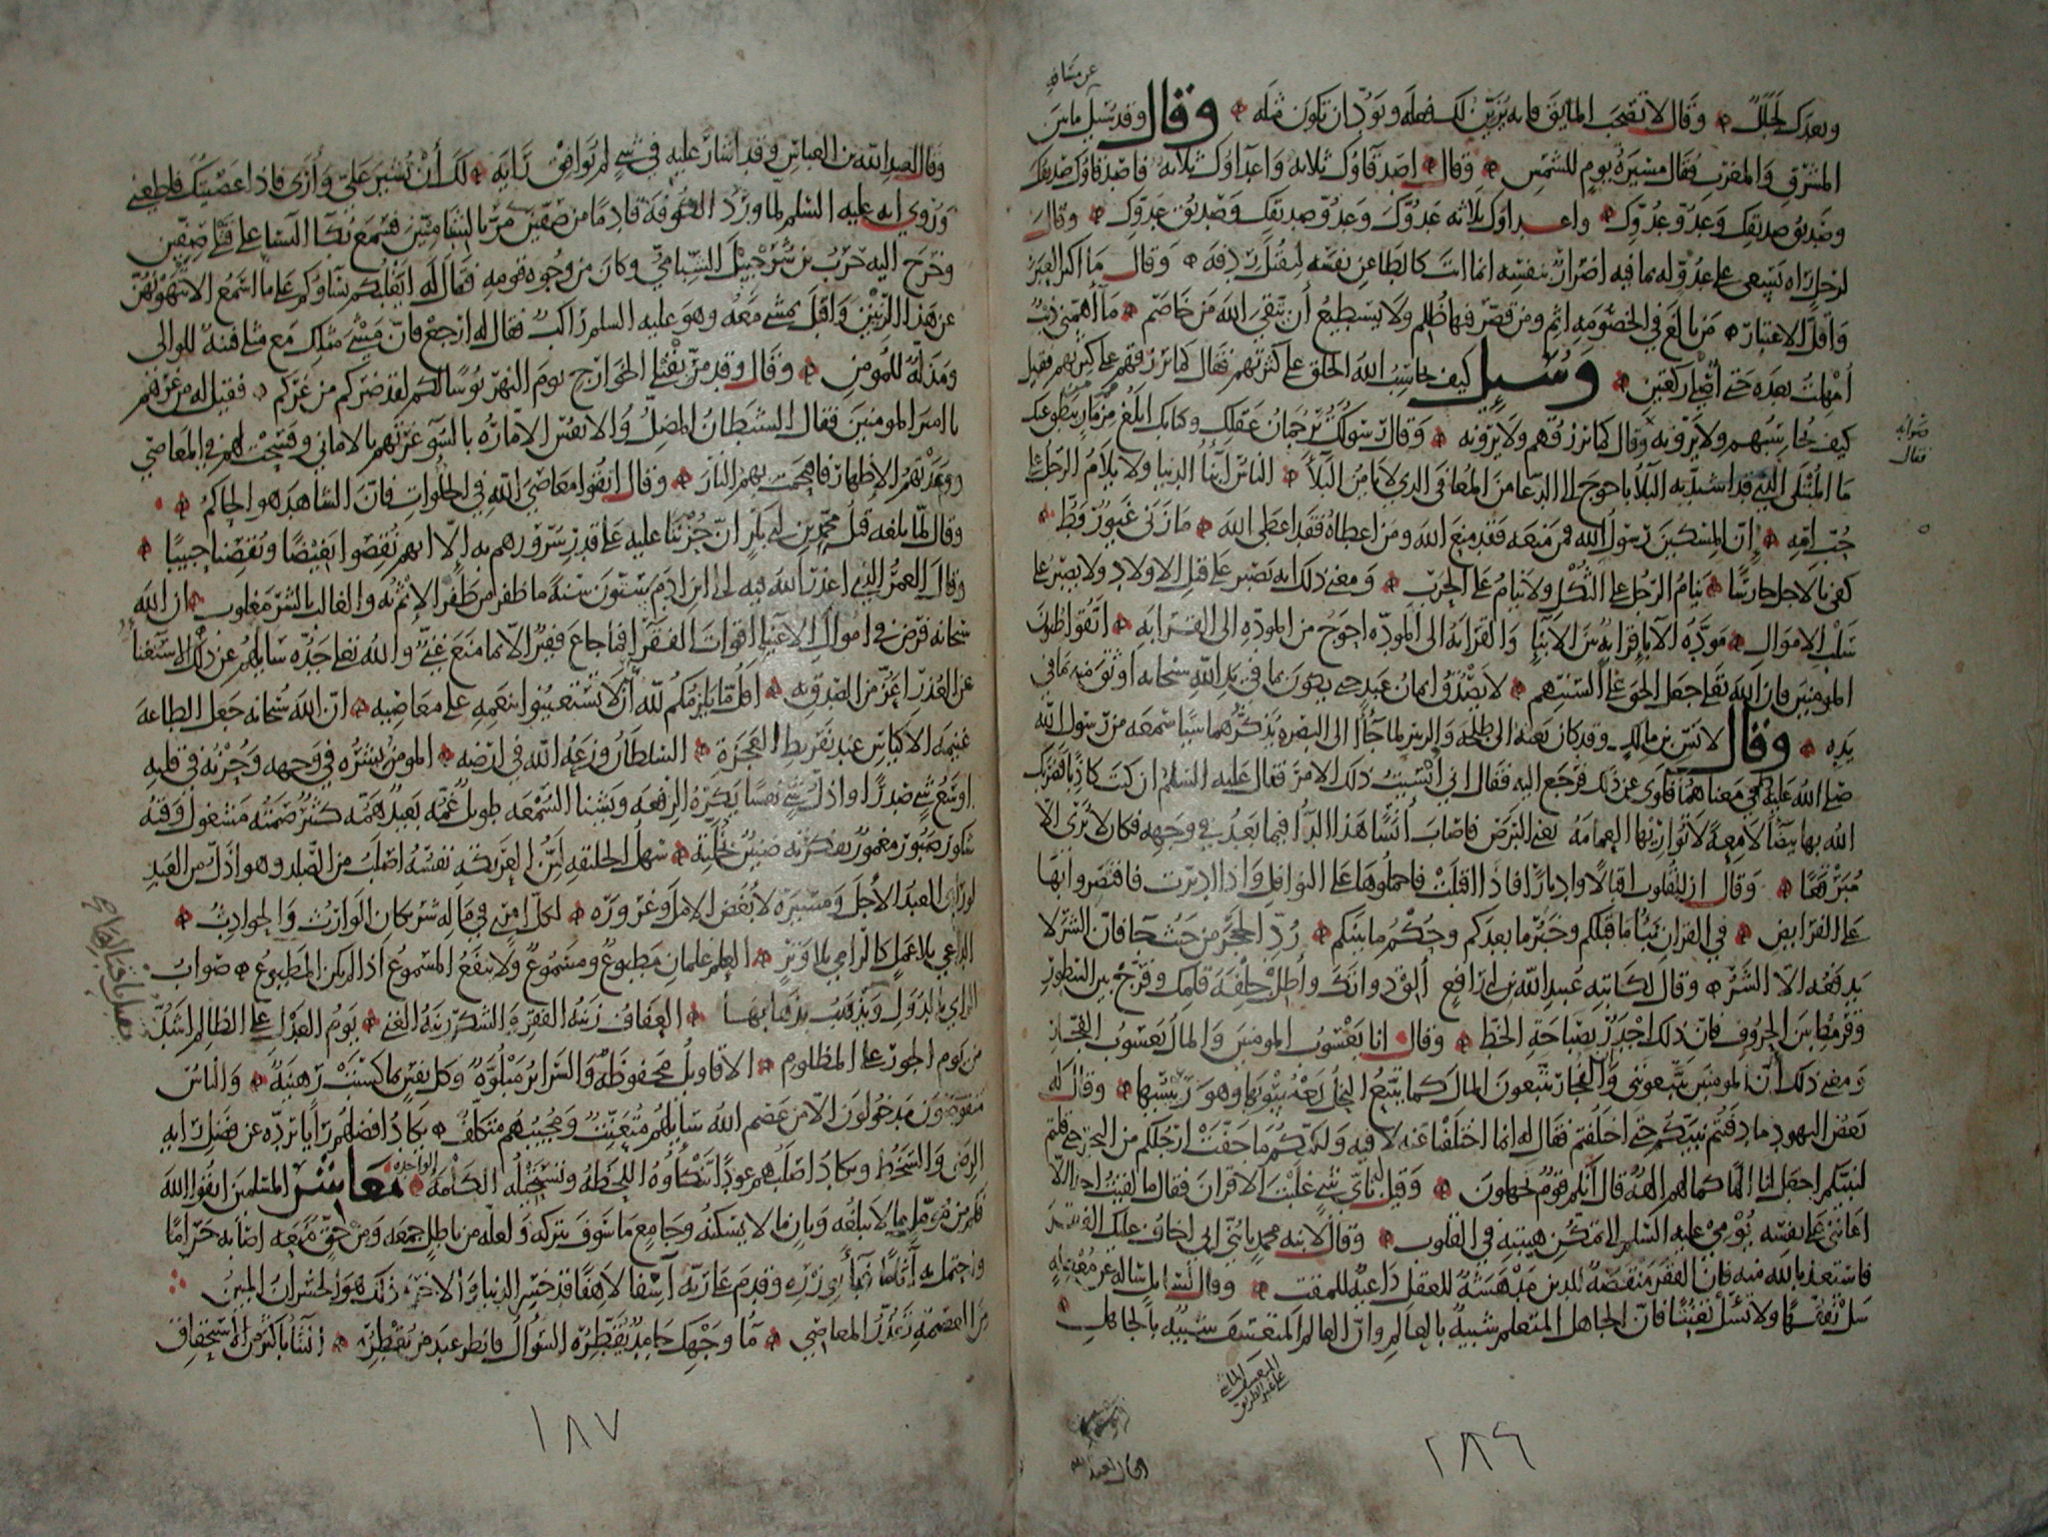 عن مسافه
وبعدك لجلل وقال لا تصحب المايق فانه يزين لك فعله ويود ان تكون مثله وقال وقد سيل ما بين
المشرق والمغرب فقال مسيرة يوم للشمس وقال اصدقاوك ثلاثه واعداوك ثلاثه فاصدقاوك صديقك
وصديق صديقك وعدو عدوك واعداوك ثلاثه عدوك وعدو صديقك وصديق عدوك وقال
لرجل راه يسعى على عدو له بما فيه اضرار بنفسه انما انت كالطاعن نفسه ليقتل ردفه وقال ما اكثر العبر
واقل الاعتبار من بالغ في الخصومه اثم ومن قصر فيها ظلم ولا يستطيع ان يتقي الله من خاصم ما اهمني ذنب
امهلت بعده حتى اصلي ركعتين وسيل كيف يحاسب الله الخلق على كثرتهم فقال كما يرزقهم على كثرتهم فقيل
كيف يحاسبهم ولا يرونه وقال كما يرزقهم ولا يرونه وقال رسولك ترجمان عقلك وكتابك ابلغ من ينطق عنك
صوابه فقال
ما المبتلى الذي قد اشتد به البلا باحوج الى الدعا من المعافى الذي لا يامن البلا الناس ابنا الدنيا ولا يلام الرجل على
حب امه ان المسكين رسول الله فمن منعه فقد منع الله ومن اعطاه فقد اعطى الله ما زنى غيور قط
كفى بالاجل حارسا ينام الرجل على الثكل ولا ينام على الحرب ومعنى ذلك انه يصبر على قتل الاولاد ولا يصبر على
سلب الاموال مودة الابا قرابة بين الابنا والقرابه الى الموده احوج من الموده الى القرابه اتقوا ظنون
المومنين فان الله تعالى جعل الحق على السنتهم لا يصدق ايمان عبد حتى يكون بما في يد الله سبحانه اوثق منه بما في
يده وقال لانس بن مالك وقد كان بعثه الى طلحه والزبير لما جاا الى البصره يذكرهما شيا سمعه من رسول الله
صلى الله عليه في معناهما فلوى عن ذلك فرجع اليه فقال اني انسيت ذلك الامر فقال عليه السلم ان كنت كاذبا فضربك
الله بها بيضا لامعة لا تواريها العمامه يعني البرص فاصاب انسا هذا الدا فيما بعد في وجهه فكان لا يرى الا
مبرقعا وقال ان للقلوب اقبالا وادبارا فاذا اقبلت فاحملوها على النوافل واذا ادبرت فاقتصروا بها
على الفرايض في القران نبا ما قبلكم وخبر ما بعدكم وحكم ما بينكم رد الحجر من حيث جا فان الشر لا
يدفعه الا الشر وقال لكاتبه عبيد الله بن ابي رافع الق دواتك واطل جلفة قلمك وفرج بين السطور
وقرمط بين الحروف فان ذلك اجدر بصباحة الخط وقال انا يعسوب المومنين والمال يعسوب الفجار
ومعنى ذلك ان المومنين يتبعونني والفجار يتبعون المال كما يتبع النحل يعسوبها وهو رييسها وقال له
بعض اليهود ما دفنتم نبيكم حتى اختلفتم فقال له انما اختلفنا عنه لا فيه ولكنكم ما جفت ارجلكم من البحر حتى قلتم
لنبيكم اجعل لنا الها كما لهم الهة قال انكم قوم تجهلون وقيل له باي شي غلبت الاقران فقال ما لقيت احدا الا
اعانني على نفسه يومي عليه السلم الى تمكن هيبته في القلوب وقال لابنه محمد يا بني اني اخاف عليك الفقر
فاستعذ بالله منه فان الفقر منقصة للدين مدهشة للعقل داعية للمقت وقال لسايل ساله عن معضله
سل تفقها ولا تسل تعنتا فان الجاهل المتعلم شبيه بالعالم وان العالم المتعسف شبيه بالجاهل
١٨٦
وقال لعبد الله بن العباس وقد اشار عليه في شي لم يوافق رايه لك ان تشير علي وارى فاذا عصيتك فاطعني
وروي انه عليه السلم لما ورد الكوفة قادما من صفين مر بالشباميين فسمع بكا النسا على قتلى صفين
وخرج اليه حرب بن شرحبيل الشبامي وكان من وجوه قومه فقال له ايغلبكم نساوكم على ما اسمع الا تنهونهن
عن هذا الرنين واقبل يمشي معه وهو عليه السلم راكب فقال له ارجع فان مشي مثلك مع مثلي فتنة للوالي
ومذلة للمومن وقال وقد مر بقتلى الخوارج يوم النهر بوسا لكم لقد ضركم من غركم فقيل له من غرهم
يا امير المومنين فقال الشيطان المضل والانفس الامارة بالسو غرتهم بالاماني وفسحت لهم في المعاصي
ووعدتهم الاظهار فاقتحمت بهم النار وقال اتقوا معاصي الله في الخلوات فان الشاهد هو الحاكم
وقال لما بلغه قتل محمد بن ابي بكر ان حزننا عليه على قدر سرورهم به الا انهم نقصوا بغيضا ونقصنا حبيبا
وقال العمر الذي اعذر الله فيه الى ابن ادم ستون سنة ما ظفر من ظفر الاثم به والغالب بالشر مغلوب ان الله
سبحانه فرض في اموال الاغنيا اقوات الفقرا فما جاع فقير الا بما منع غني والله تعالى جده سايلهم عن ذلك الاستغنا
عن العذر اعز من الصدق به اقل ما يلزمكم لله ان لا تستعينوا بنعمه على معاصيه ان الله سبحانه جعل الطاعة
غنيمة الاكياس عند تفريط العجزة السلطان وزعة الله في ارضه المومن بشره في وجهه وحزنه في قلبه
اوسع شي صدرا واذل شي نفسا يكره الرفعه ويشنا السمعه طويل غمه بعيد همه كثير صمته مشغول وقته
شكور صبور مغمور بفكرته ضنين بخلته سهل الخليقه لين العريكة نفسه اصلب من الصلد وهو اذل من العبد
لو راى العبد الاجل ومسيره لابغض الامل وغروره لكل امري في ماله شريكان الوارث والحوادث
الداعي بلا عمل كالرامي بلا وتر العلم علمان مطبوع ومسموع ولا ينفع المسموع اذا لم يكن المطبوع صواب
الراي بالدول ويذهب بذهابها العفاف زينة الفقر والشكر زينة الغنى يوم العدل على الظالم اشد
من يوم الجور على المظلوم الاقاويل محفوظة والسراير مبلوة وكل نفس بما كسبت رهينة والناس
منقوصون مدخولون الا من عصم الله سايلهم متعنت ومجيبهم متكلف يكاد افضلهم رايا يرده عن فضل رايه
الرضى والسخط ويكاد اصلبهم عودا تنكاوه اللحظة وتستحيله الكلمة الواحدة معاشر المسلمين اتقوا الله
فكم من مومل ما لا يبلغه وبان ما لا يسكنه وجامع ما سوف يتركه ولعله من باطل جمعه ومن حق منعه اصابه حراما
واحتمل به اثاما فبا بوزره وقدم على ربه اسفا لاهفا قد خسر الدنيا والاخرة ذلك هو الخسران المبين
من العصمة تعذر المعاصي ما وجهك جامد يقطره السوال فانظر عند من تقطره الثنا باكثر من الاستحقاق
١٨٧